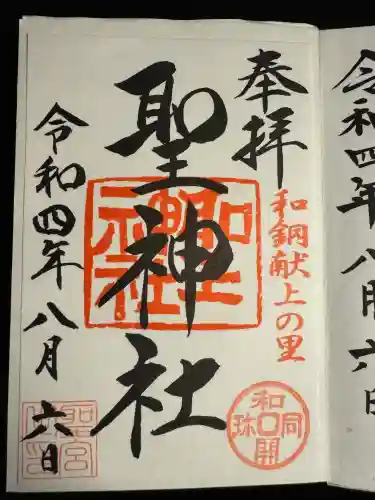 奉拝
和銅献上の里
聖神社
令和四年八月六日
和同開珎
令和四年八月六日